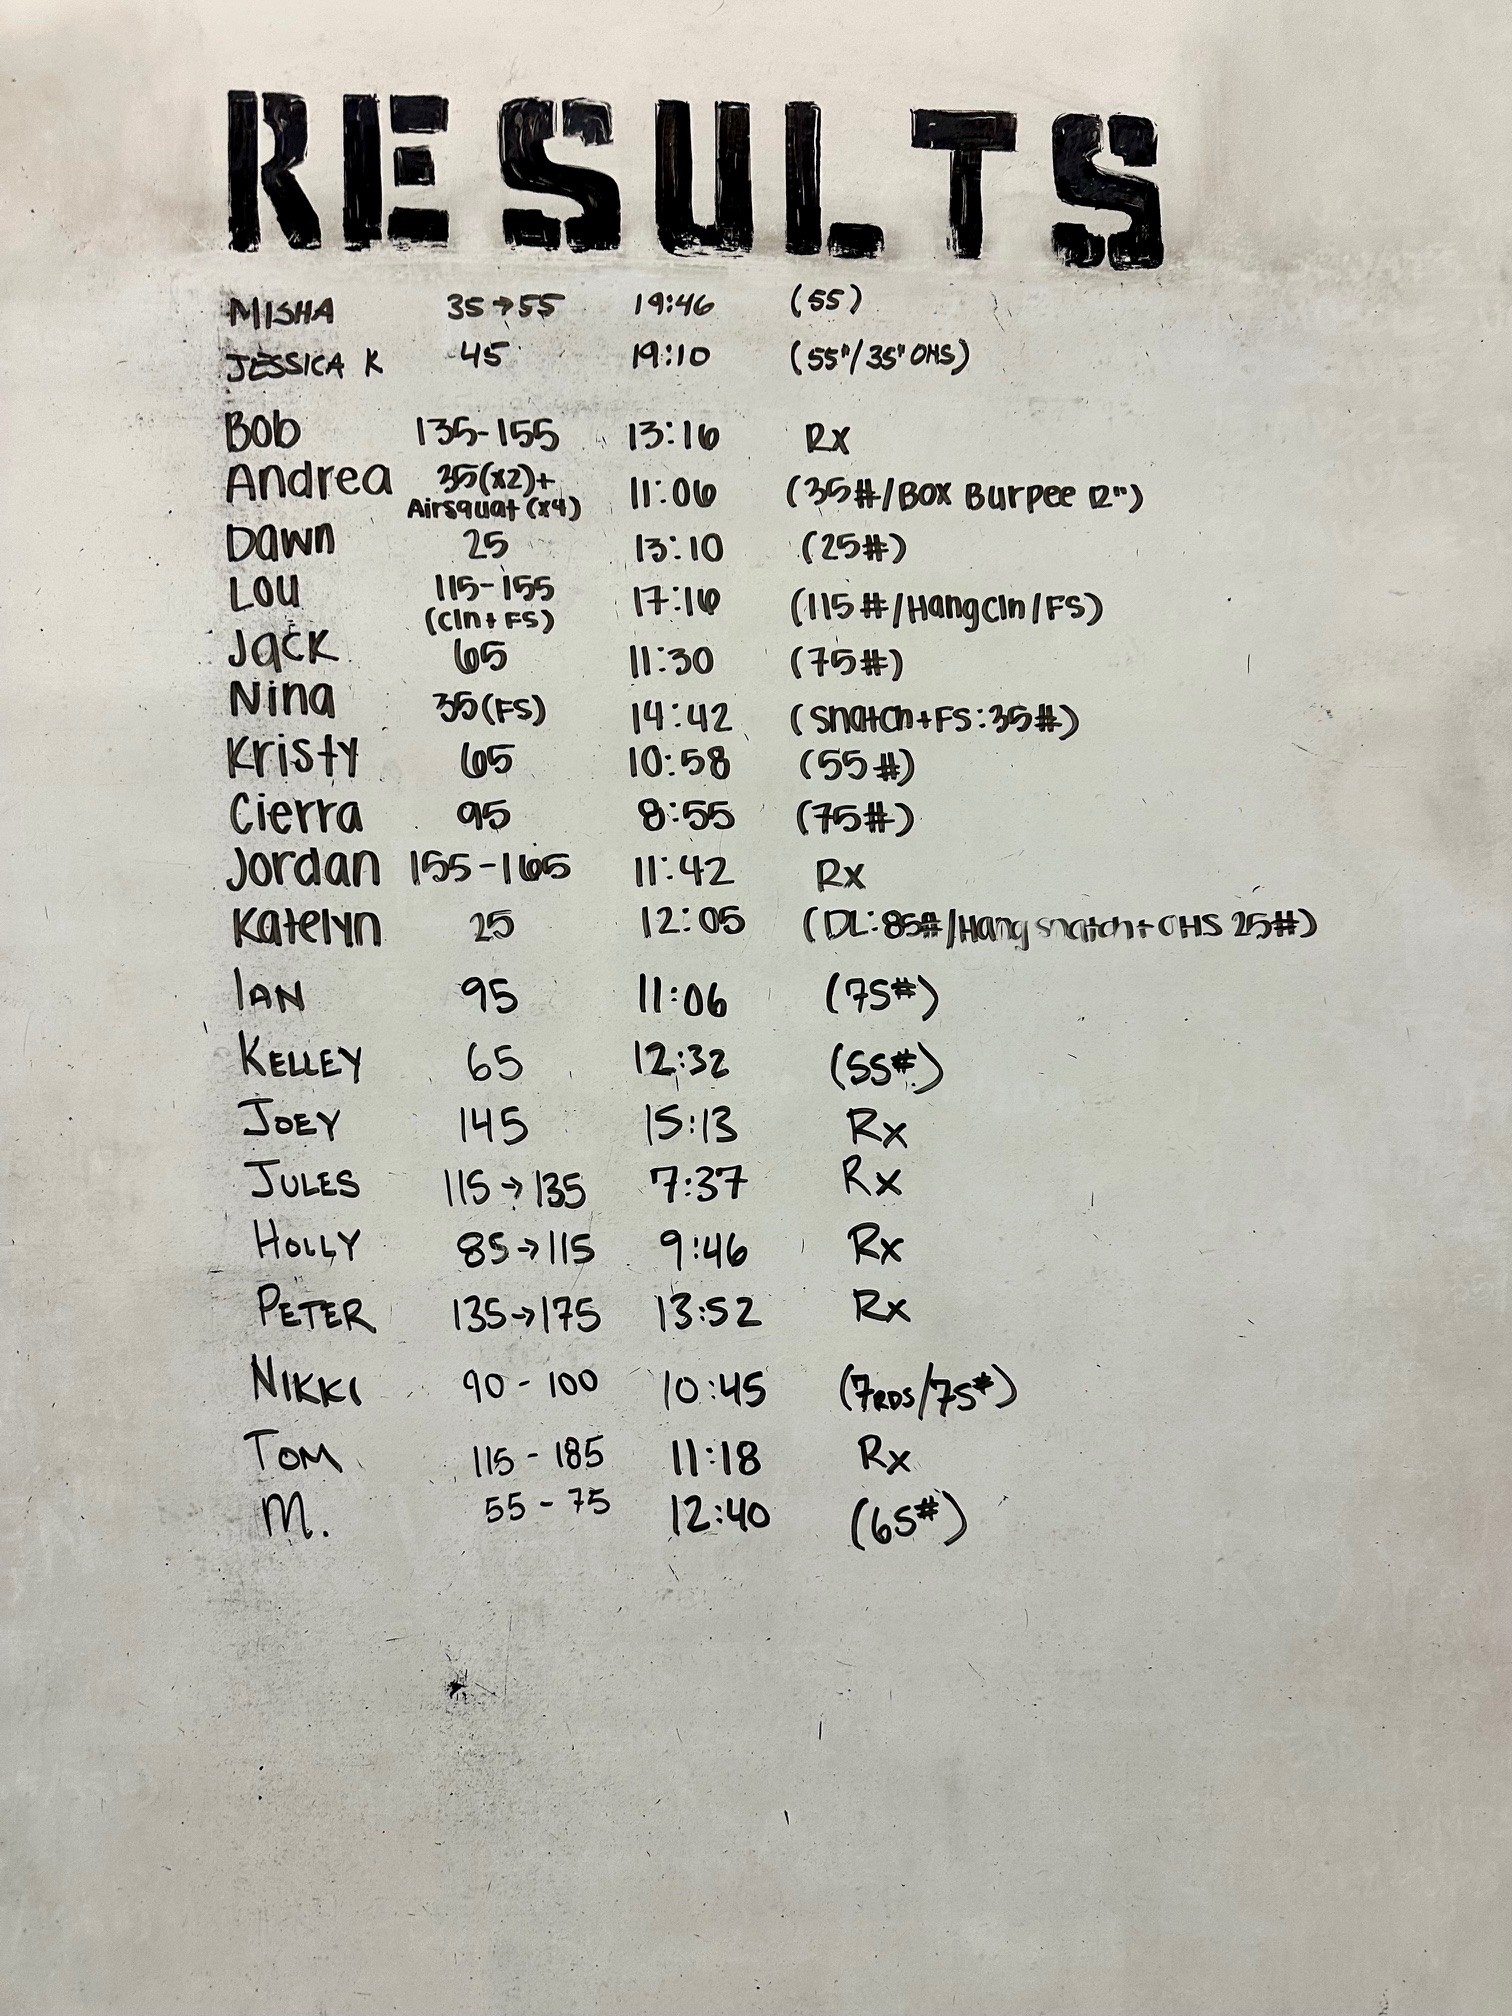 RESULTS
MISHA 35→55 19:46 (55)
JESSICA K 45 19:10 (55#/35# OHS)
Bob 135-155 13:16 Rx
Andrea 35(x2)+ 11:06 (35#/Box Burpee 12")
Airsquat (x4)
Dawn 25 13:10 (25#)
Lou 115-155 17:16 (115#/Hang Cln/FS)
(Cln + FS)
Jack 65 11:30 (75#)
Nina 35(FS) 14:42 (Snatch+FS:35#)
Kristy 65 10:58 (55#)
Cierra 95 8:55 (75#)
Jordan 155-165 11:42 Rx
Katelyn 25 12:05 (DL:85#/Hang snatch+OHS 25#)
IAN 95 11:06 (75#)
KELLEY 65 12:32 (55#)
JOEY 145 15:13 Rx
JULES 115→135 7:37 Rx
HOLLY 85→115 9:46 Rx
PETER 135→175 13:52 Rx
NIKKI 90 - 100 10:45 (7RDS/75#)
TOM 115 - 185 11:18 Rx
M. 55 - 75 12:40 (65#)